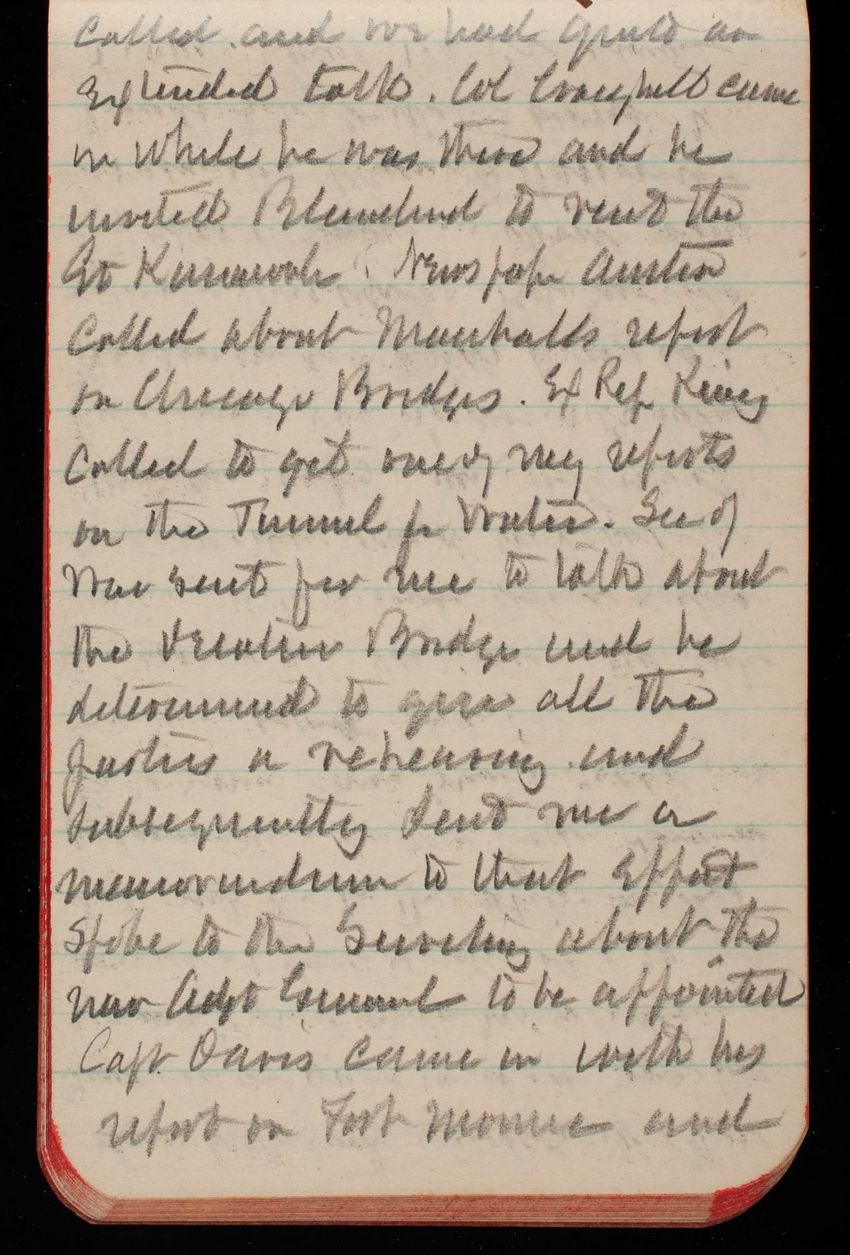 Called and we had quite an
Extended talk. Col Craighill came
in while he was there and he
invited to visit the
Gt Kanawha. Newspaper Austin
Called about Marshalls report
on Chicago Bridges. Ex Rep
Called to get one of my reports
on the Tunnel for Water. Sec of
War sent for me to talk about
the Bridge and he
determined to give all the
parties a rehearing and
subsequently sent me a
memorandum to that Effect
Spoke to the Secretary about the
new Adjt General to be appointed
Capt Davis came in with his
report on Fort Monroe and